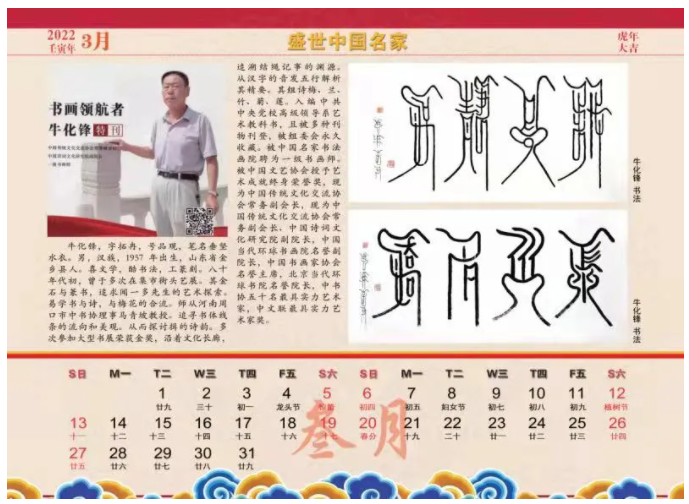 2022
壬寅年
3月
盛世中国名家
虎年
大吉
书画领航者
牛化锋 特刊
牛化锋，字拓冉，号品现，笔名垂竖
水衣。男，汉族，1957 年出生，山东省金
乡县人。喜文学，酷书法，工篆刻。八十
年代初，曾于多次在集市街头艺展。其金
石与篆书，追求闻一多先生的艺术探索。
易学书与诗，与梅花的合流。师从河南周
口市中书协理事马青坡教授。追寻书体线
条的流向和美观。从而探讨辑的诗韵。多
次参加大型书展荣获金奖，沿着文化长廊，
追溯结绳记事的渊源。
从汉字的音发五行解析
其精要。其组诗梅、兰、
竹、菊、莲。入编中共
中央党校高级领导系艺
术教科书，且被多种刊
物刊登，被组委会永久
收藏。被中国名家书法
画院聘为一级书画师。
被中国文艺协会授予艺
术成就终身荣誉奖，现
为中国传统文化交流协
会常务副会长，现为中
国传统文化交流协会常
务副会长，中国诗词文
化研究院副院长，中国
当代环球书画院名誉副
院长，中国书画家协会
名誉主席，北京当代环
球书院名誉院长，中书
协五十名最具实力艺术
家，中文联最具实力艺
术家奖。
牛化锋 书法
牛化锋 书法
S日 M一 T二 W三 T四 F五 S六 S日 M一 T二 W三 T四 F五 S六
1 2 3 4 5 6 7 8 9 10 11 12
廿九 三十 初一 龙头节 初四 初五 妇女节 初七 初八 初九 植树节
13 14 15 16 17 18 19 20 21 22 23 24 25 26
十一 十二 十三 十四 十五 十六 十七 春分 十九 二十 廿一 廿二 廿三 廿四
27 28 29 30 31
廿五 廿六 廿七 廿八 廿九
叁月